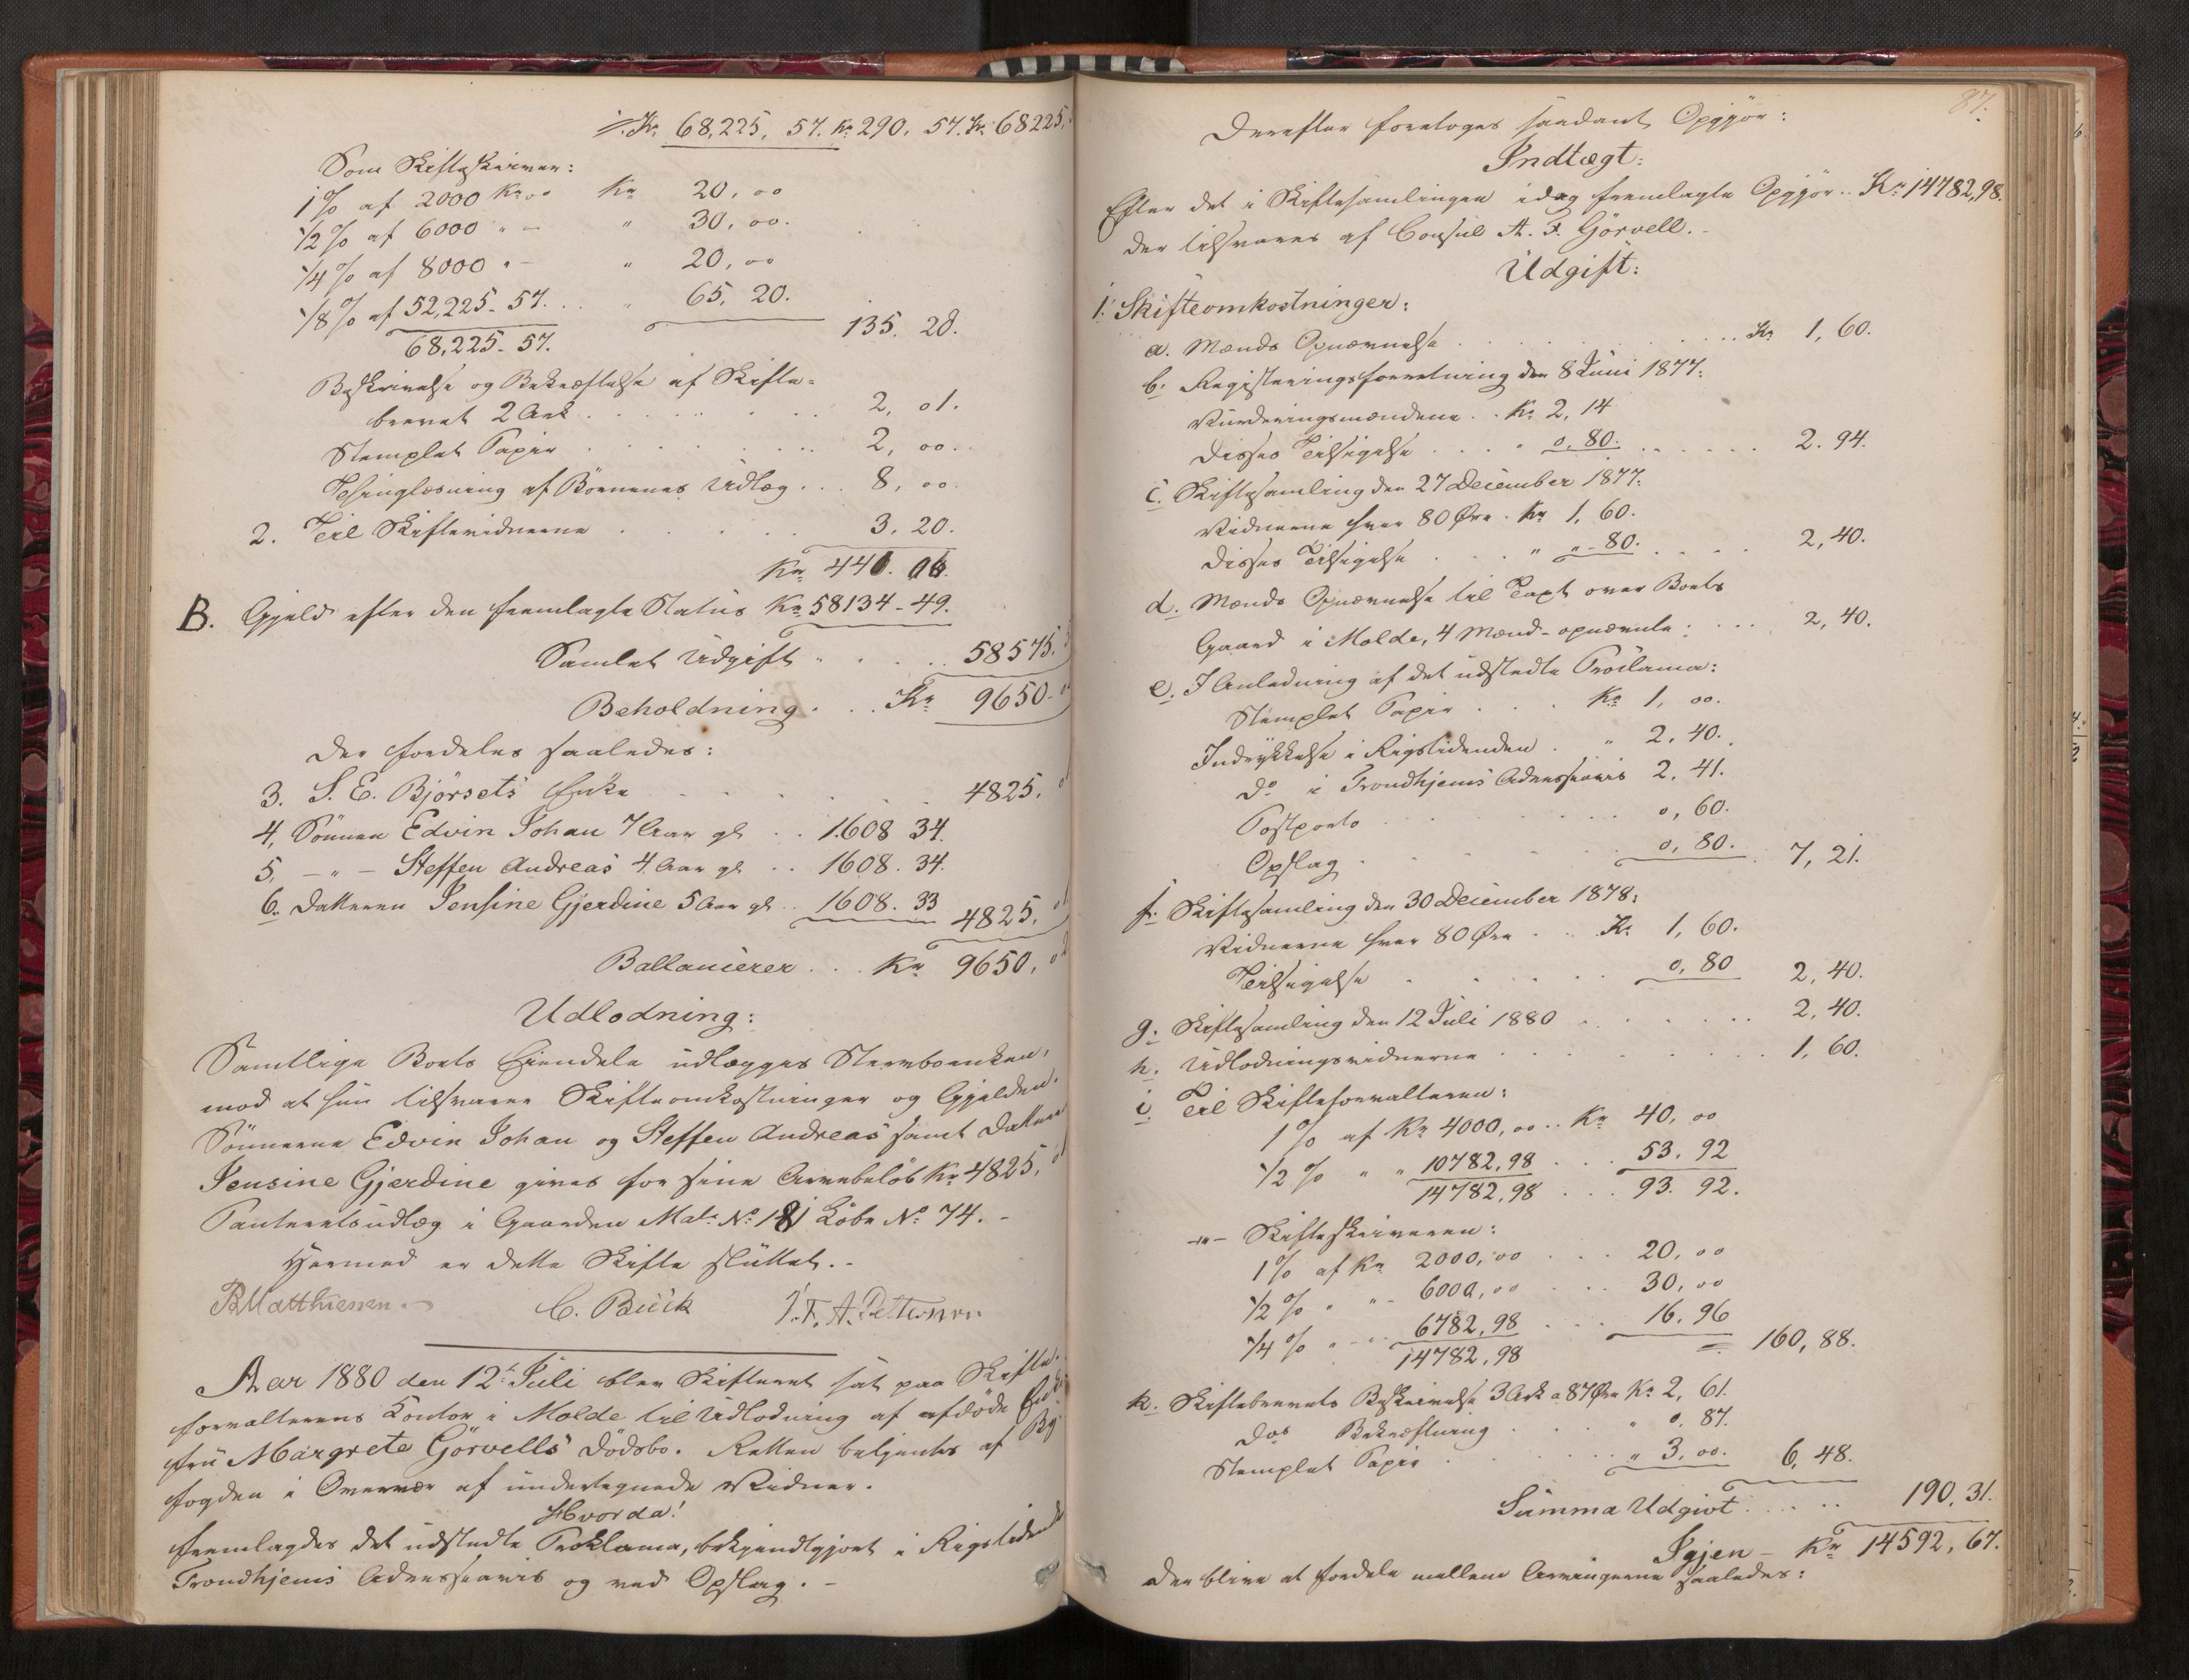 ./. Kr 68,225, 57. Kr 290, 57. Kr 68225,
Som Skifteskriver:
1% af 2000 Kr 00 Kr 20, 00
1/2% af 6000 " — " 30, 00.
1/4% af 8000 " — " 20, 00
1/8% af 52,225 - 57. . . " 65, 20.
68,225 - 57. 135. 20.
Beskrivelse og Bekræftelse af Skifte-
brevet 2 Ark . . . . . 2, 01.
Stemplet Papir . . . . . 2, 00.
Thinglæsning af Börnenes Udlæg . . . 8, 00.
2. Til Skiftevidnerne . . . . . 3, 20.
Kr 441. 06.
B. Gjæld efter den fremlagte Status Kr 58134 - 49.
Samlet Udgift . . . . . 58575.
Beholdning . . . Kr 9650.
der fordeles saaledes:
3. S. E. Bjørsets Enke . . . . . 4825,
4, Sönnen Edvin Johan 7 Aar gl . . 1608 34.
5, — " — Steffen Andreas 4 Aar gl . . 1608. 34.
6. Datteren Jensine Gjerdine 5 Aar gl . . 1608. 33 4825,
Ballancerer . . . Kr 9650,
Udlodning:
Samtlige Boets Eiendele udlægges Stervboenken,
mod at hun tilsvarer Skifteomkostninger og Gjælden.
Sönnerne Edvin Johan og Steffen Andreas samt Datteren
Jensine Gjerdine gives for sine Arvebeløb Kr 4825,
Panteretsudlæg i Gaarden Matr No 181 Löbe No 74. -
Hermed er dette Skifte sluttet. -
B Matthiessen. C. Buck J. F. A. Pettersen
Aar 1880 den 12te Juli blev Skifteret sat paa Skifte-
forvalterens Kontor i Molde til Udlodning af afdöde Enke-
fru Margrete Görvells Dödsbo. Retten betjentes af By-
fogden i Overvær af undertegnede Vidner.
Hvorda!
fremlagdes det udstedte Proklama, bekjendtgjort i Rigstidende
Trondhjems Adresseavis og ved Opslag. -
87.
Derefter foretoges saadant Opgjör:
Indtægt:
Efter det i Skiftesamlingen idag fremlagte Opgjör . . Kr 14782,98.
der tilsvares af Consul A. F. Görvell. -
Udgift:
1. Skifteomkostninger:
a. Mænds Opnævnelse . . . . . Kr 1, 60.
b. Registreringsforretning den 8 Juni 1877:
Vurderingsmændene . . Kr 2, 14
disses Tilsigelse . . . . " 0, 80. . . . . . 2. 94.
c. Skiftesamling den 27 December 1877:
Vidnerne hver 80 Øre . Kr 1, 60.
disses Tilsigelse . . . " " - 80. . . . . 2, 40.
d. Mænds Opnævnelse til Taxt over Boets
Gaard i Molde, 4 Mænd - opnævnte: . . . 2, 40.
e. I Anledning af det udstedte Proclama:
Stemplet Papir . . . Kr 1, 00.
Indrykkelse i Rigstidenden . " 2, 40.
do i Trondhjems Adresseavis 2, 41.
Postporto . . . . . 0, 60.
Opslag . . . . . 0, 80. 7, 21.
f. Skiftesamling den 30 December 1878:
Vidnerne hver 80 Øre . . . Kr 1, 60.
Tilsigelse . . . . . 0, 80 2, 40.
g. Skiftesamling den 12 Juli 1880 . . . . . 2, 40.
h. Udlodningsvidnerne . . . . . 1, 60.
i. Til Skifteforvalteren:
1% af Kr 4000, 00 . . Kr 40, 00
1/2% " " 10782, 98 . . . 53. 92
14782, 98 . . . 93. 92.
—"— Skifteskriveren:
1% af Kr 2000, 00 . . . 20, 00
1/2% " " - 6000, 00 . . . 30, 00
1/4% " - - 6782, 98 . . . 16, 96
14782, 98 = 160, 88.
k. Skiftebrevets Beskrivelse 3 Ark a 87 Øre Kr 2, 61.
dos Bekræftning . . . " 0, 87.
Stemplet Papir . . . . . " 3, 00. 6, 48.
Summa Udgivt . . . . . 190, 31.
Igjen - Kr 14592, 67.
der blive at fordele mellem Arvingerne saaledes: